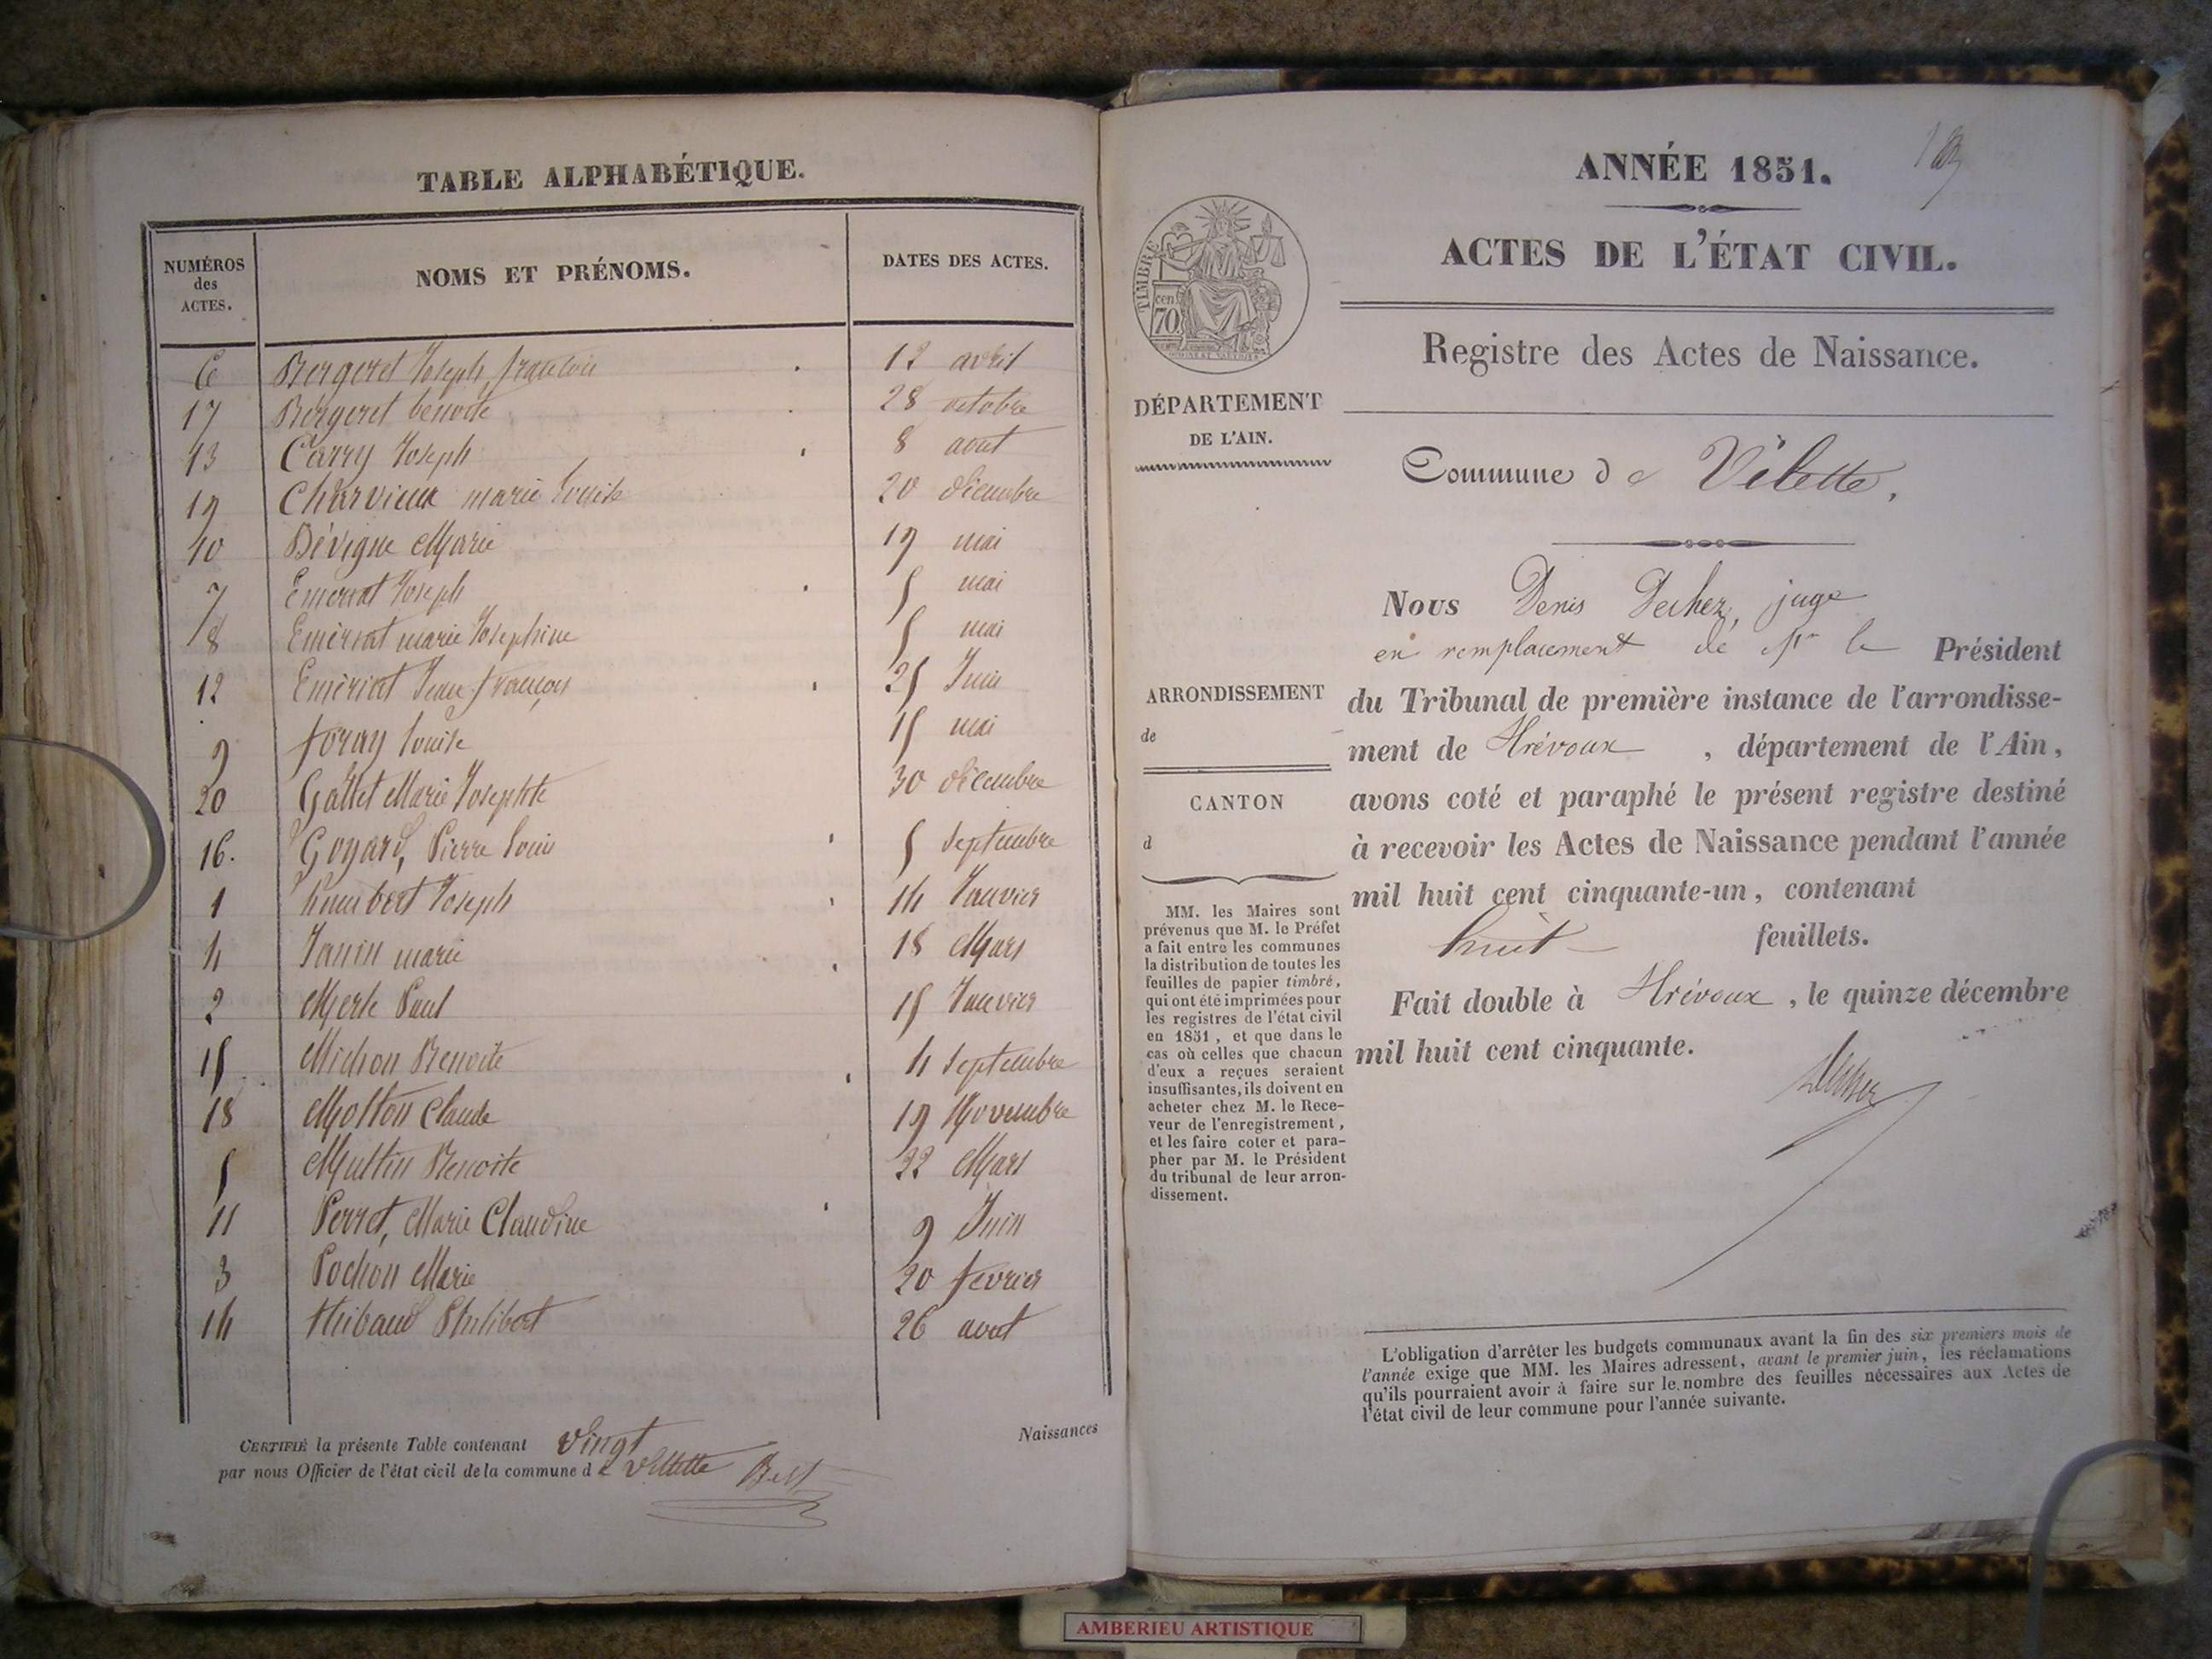 TABLE ALPHABÉTIQUE.
NUMÉROS des ACTES. NOMS ET PRÉNOMS. DATES DES ACTES.
6 Bergeret Joseph, francois 12 avril
17 Bergeret benoite 28 octobre
13 Carry Joseph 8 aout
19 Charvieux marie Louise 20 décembre
10 Dévigne Marie 19 mai
7 Emeriat Joseph 5 mai
8 Emériat marie Josephine 5 mai
12 Emériat Jean françois 25 Juin
9 foray Louise 15 mai
20 Gallet Marie Josephte 30 décembre
16. Goyard, Pierre Louis 5 Septembre
1 humbert Joseph 14 Janvier
4 Janin marie 18 Mars
2 Merle Paul 15 Janvier
15 Michon Benoite 4 Septembre
18 Mollon Claude 19 Novembre
5 Benoite 22 Mars
11 Perret, Marie Claudine 9 Juin
3 Pochon Marie 20 fevrier
14 thibaud Philibert 26 aout
CERTIFIÉ la présente Table contenant Vingt Naissances
par nous Officier de l'état cicil de la commune d e Villette
ANNÉE 1851.
ACTES DE L'ÉTAT CIVIL.
TIMBRE
cen.
70.
Registre des Actes de Naissance.
DÉPARTEMENT
DE L'AIN.
Commune d e Vilette.
Nous Denis Dechez, juge
en remplacement de Mr le Président
ARRONDISSEMENT
de
du Tribunal de première instance de l'arrondisse-
ment de Trévoux , département de l'Ain,
CANTON
d
avons coté et paraphé le présent registre destiné
à recevoir les Actes de Naissance pendant l'année
mil huit cent cinquante-un, contenant
huit feuillets.
Fait double à Trévoux , le quinze décembre
mil huit cent cinquante.
Dechez
MM. les Maires sont
prévenus que M. le Préfet
a fait entre les communes
la distribution de toutes les
feuilles de papier timbré,
qui ont été imprimées pour
les registres de l'état civil
en 1851, et que dans le
cas où celles que chacun
d'eux a reçues seraient
insuffisantes, ils doivent en
acheter chez M. le Rece-
veur de l'enregistrement,
et les faire coter et para-
pher par M. le Président
du tribunal de leur arron-
dissement.
L'obligation d'arrêter les budgets communaux avant la fin des six premiers mois de
l'année exige que MM. les Maires adressent, avant le premier juin, les réclamations
qu'ils pourraient avoir à faire sur le nombre des feuilles nécessaires aux Actes de
l'état civil de leur commune pour l'année suivante.
AMBERIEU ARTISTIQUE